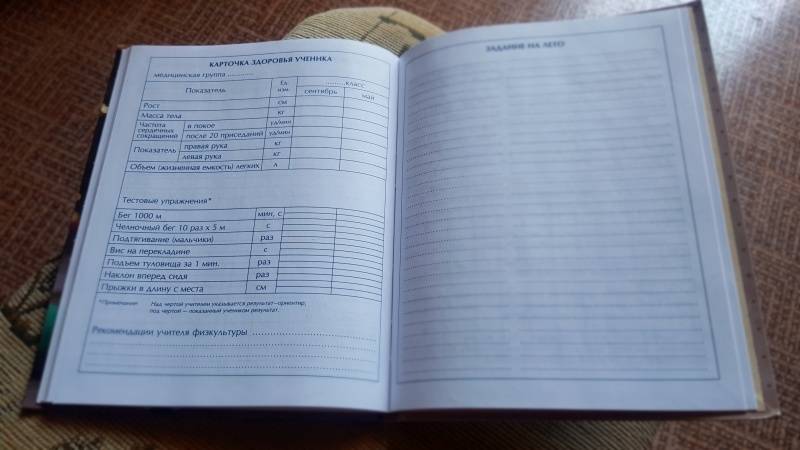 КАРТОЧКА ЗДОРОВЬЯ УЧЕНИКА
медицинская группа ............
Показатель Ед. изм. ..........класс
сентябрь май
Рост см
Масса тела кг
Частота сердечных сокращений в покое уд/мин
после 20 приседаний уд/мин
Показатель правая рука кг
левая рука кг
Объем (жизненная емкость) легких л
Тестовые упражнения*
Бег 1000 м мин, с
Челночный бег 10 раз х 5 м с
Подтягивание (мальчики) раз
Вис на перекладине с
Подъем туловища за 1 мин. раз
Наклон вперед сидя раз
Прыжки в длину с места см
*Примечание Над чертой учителем указывается результат-ориентир,
под чертой — показанный учеником результат.
Рекомендации учителя физкультуры
ЗАДАНИЕ НА ЛЕТО